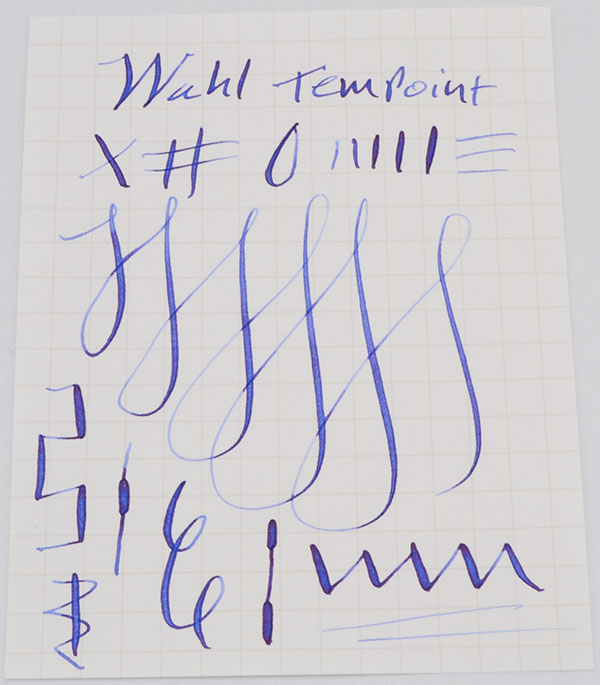 Wahl TemPoint
X # 0